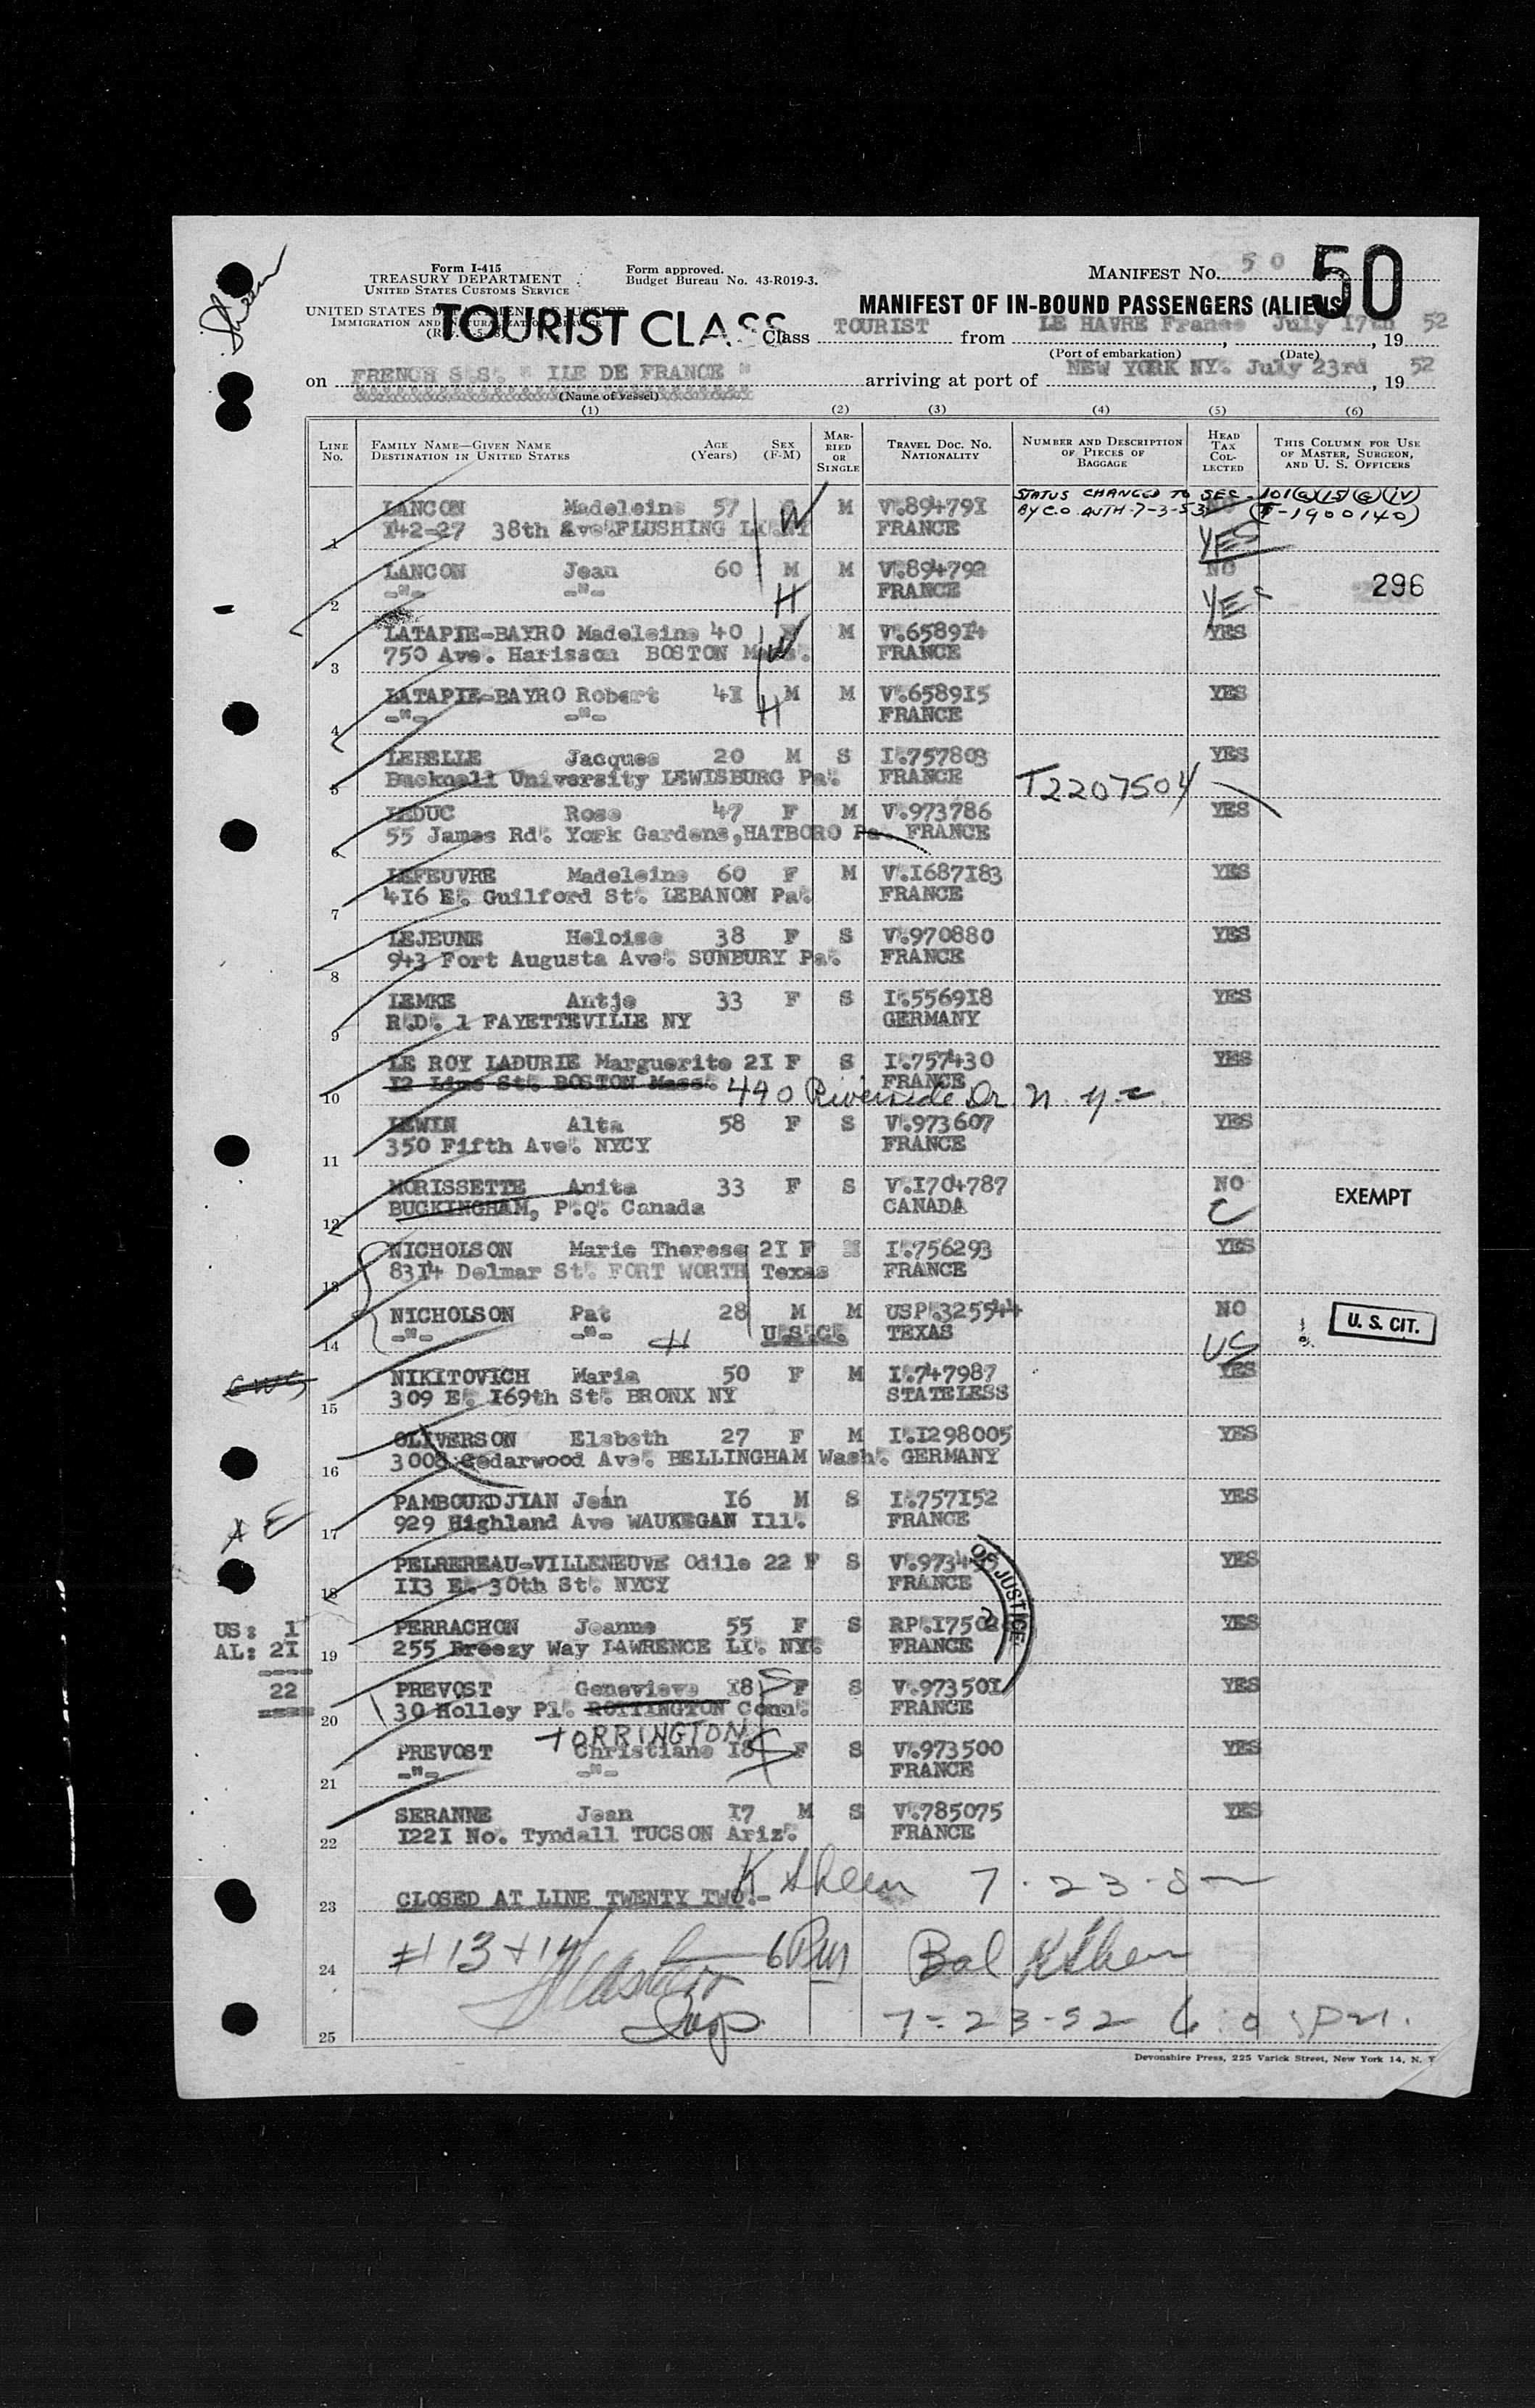 Sheen
Form I-415
TREASURY DEPARTMENT
UNITED STATES CUSTOMS SERVICE
Form approved.
Budget Bureau No. 43-R019-3.
MANIFEST No. 50
50
UNITED STATES DEPARTMENT OF JUSTICE
IMMIGRATION AND NATURALIZATION SERVICE
TOURIST CLASS
MANIFEST OF IN-BOUND PASSENGERS (ALIENS)
Class TOURIST from LE HAVRE France, July 17th, 19 52
(Port of embarkation) (Date)
on FRENCH S.S. " ILE DE FRANCE " arriving at port of NEW YORK NY. July 23rd, 19 52
(Name of vessel)
(1) (2) (3) (4) (5) (6)
LINE No. FAMILY NAME—GIVEN NAME DESTINATION IN UNITED STATES AGE (Years) SEX (F-M) MARRIED OR SINGLE TRAVEL DOC. No. NATIONALITY NUMBER AND DESCRIPTION OF PIECES OF BAGGAGE HEAD TAX COLLECTED THIS COLUMN FOR USE OF MASTER, SURGEON, AND U. S. OFFICERS
STATUS CHANGED TO SEC. 101(a)(15)(G)(iV)
LANCON Madeleine 57 W M V.894791 BY C.O. AUTH-7-3-53 NO (T-1900140)
1 142-27 38th Ave. FLUSHING LI NY FRANCE YES
LANCON Jean 60 M M V.894792 NO 296
2 -"- -"- H FRANCE YES
LATAPIE-BAYRO Madeleine 40 W M V.658914 YES
3 750 Ave. Harisson BOSTON Mass. FRANCE
LATAPIE-BAYRO Robert 41 M M V.658915 YES
4 -"- -"- H FRANCE
LEBELLE Jacques 20 M S I.757808 YES
5 Bucknell University LEWISBURG Pa. FRANCE T2207504
LEDUC Rose 47 F M V.973786 YES
6 55 James Rd. York Gardens, HATBORO Pa. FRANCE
LEFEUVRE Madeleine 60 F M V.1687183 YES
7 416 E. Guilford St. LEBANON Pa. FRANCE
LEJEUNE Heloise 38 F S V.970880 YES
8 943 Fort Augusta Ave. SUNBURY Pa. FRANCE
LEMKE Antje 33 F S I.556918 YES
9 R.D. 1 FAYETTEVILLE NY GERMANY
LE ROY LADURIE Marguerite 21 F S I.757430 YES
10 12 Lime St. BOSTON Mass. FRANCE
440 Riverside Dr N. Y. C
LEWIN Alta 58 F S V.973607 YES
11 350 Fifth Ave. NYCY FRANCE
MORISSETTE Anita 33 F S V.1704787 NO EXEMPT
12 BUCKINGHAM, P.Q. Canada CANADA C
NICHOLSON Marie Therese 21 F M I.756293 YES
13 8314 Delmar St. FORT WORTH Texas FRANCE
NICHOLSON Pat 28 M M USP.325544 NO U. S. CIT.
14 -"- -"- H U.S.C. TEXAS UC
NIKITOVICH Maria 50 F M I.747987 YES
15 309 E. 169th St. BRONX NY STATELESS
OLIVERSON Elsbeth 27 F M I.1298005 YES
16 3008 Cedarwood Ave. BELLINGHAM Wash. GERMANY
PAMBOUKDJIAN Jean 16 M S I.757152 YES
17 929 Highland Ave WAUKEGAN Ill. FRANCE
PELREREAU-VILLENEUVE Odile 22 F S V.9734 YES
18 113 E. 30th St. NYCY FRANCE
OF JUSTICE
US: 1
AL: 21
22
PERRACHON Jeanne 55 F S RP.17502 YES
19 255 Breezy Way LAWRENCE LI. NY. FRANCE
PREVOST Genevieve 18 F S V.973501 YES
20 30 Holley Pl. ROTTINGTON Conn. FRANCE
TORRINGTON
PREVOST Christiane 18 F S V.973500 YES
21 -"- -"- FRANCE
SERANNE Jean 17 M S V.785075 YES
22 1221 No. Tyndall TUCSON Ariz. FRANCE
K Sheen 7-23-52
23 CLOSED AT LINE TWENTY TWO.-
24 #13+14 Bal K Sheen
Insp.
25 7-23-52
Devonshire Press, 225 Varick Street, New York 14, N. Y.